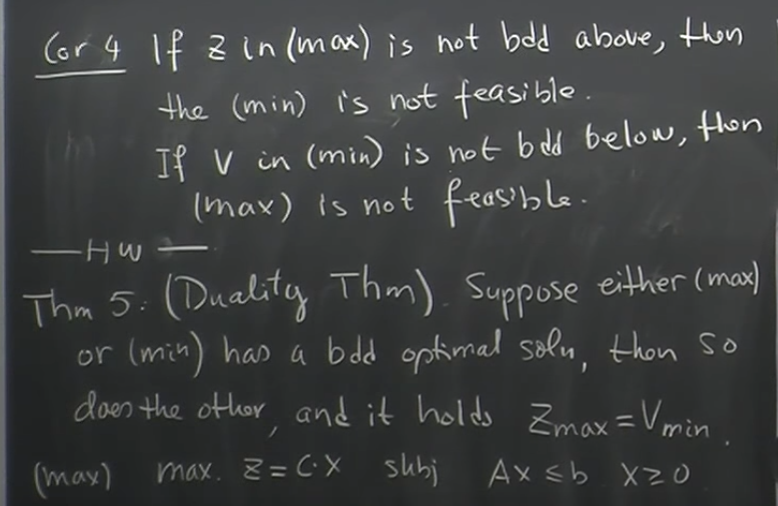 Cor 4 If z in (max) is not bdd above, then
the (min) is not feasible.
If v in (min) is not bdd below, then
(max) is not feasible.
— HW —
Thm 5: (Duality Thm). Suppose either (max)
or (min) has a bdd optimal soln, then so
does the other, and it holds Zmax = Vmin.
(max) max. z = c·x subj Ax ≤ b x ≥ 0